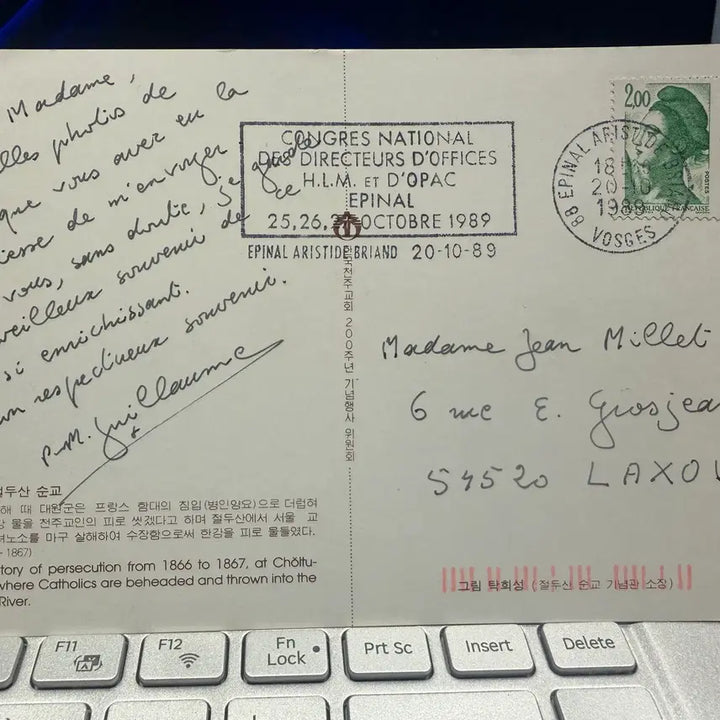 Madame,
elles photos de
que vous avez eu la
esse de m'envoyer
vous, sans doute, je garde
veilleux souvenir de ce
si enrichissant.
on respectueux souvenir.
P.M. Guillaume
절두산 순교
해 때 대원군은 프랑스 함대의 침입(병인양요)으로 더럽혀
강 물을 천주교인의 피로 씻겠다고 하며 절두산에서 서울 교
녀노소를 마구 살해하여 수장함으로써 한강을 피로 물들였다.
- 1867)
tory of persecution from 1866 to 1867, at Chŏltu-
where Catholics are beheaded and thrown into the
River.
한국천주교회 200주년 기념행사 위원회
CONGRES NATIONAL
DES DIRECTEURS D'OFFICES
H.L.M. ET D'OPAC
EPINAL
25,26, OCTOBRE 1989
EPINAL ARISTIDE BRIAND 20-10-89
88 EPINAL ARISTIDE
18
20-10
1989
VOSGES
2,00
POSTES
REPUBLIQUE FRANÇAISE
Madame Jean Millet
6 rue E. Grosjea
54520 LAXOU
그림 탁희성 (절두산 순교 기념관 소장)
F11
F12
Fn
Lock
Prt Sc
Insert
Delete